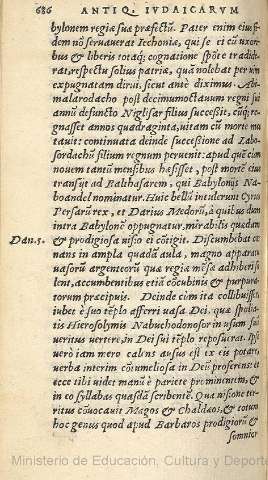 686 ANTIQ. IVDAICARVM
bylonem regiæ suæ præfectũ. Pater enim eius fi-
dem nõ seruauerat Iechoniæ, qui se ei cũ vxori-
bus & liberis totaq; cognatione spõte tradide-
rat, respectu solius patriæ, quã nolebat per vim
expugnatam dirui: sicut antè diximus. Abi-
malarodacho post decimumoctauum imperij
annũ defuncto Niglisar filius successit, cũq; re-
gnasset annos quadraginta, vitam cũ morte mu-
tauit: continuata deinde successione ad Labo-
sordachũ filium regnum peruenit: apud quẽ cùm
nouem tantũ mensibus hæsisset, post mortẽ eius
transijt ad Balthasarem, qui Babylonijs Na-
boandel nominatur. Huic bellũ intulerunt Cyrus
Persarũ rex, et Darius Medorũ, à quibus dum
intra Babylonẽ oppugnatur, mirabilis quædam
Dan.5. & prodigiosa visio ei cõtigit. Discumbebat cœ-
nans in ampla quadã aula, magno apparatu
vasorũ argenteorũ quæ regiæ mẽsæ adhiberi so-
lent, accumbentibus etiã cõcubinis & purpura-
torum præcipuis. Deinde cùm ita collibuisset,
iubet è suo tẽplo afferri vasa Dei, quæ spolia-
tis Hierosolymis Nabuchodonosor in usum suũ
veritus vertere, in Dei sui tẽplo reposuerat. Ipse
verò iam mero calens ausus est ex eis potare,
verba interim cõtumeliosa in Deũ proferens: et
ecce tibi videt manũ è pariete prominentem, &
in eo syllabas quasdã scribentẽ. Qua visione ter-
ritus cõuocauit Magos & Chaldæos, & totum
hoc genus quod apud Barbaros prodigiorũ &
somnior
Ministerio de Educación, Cultura y Deporte